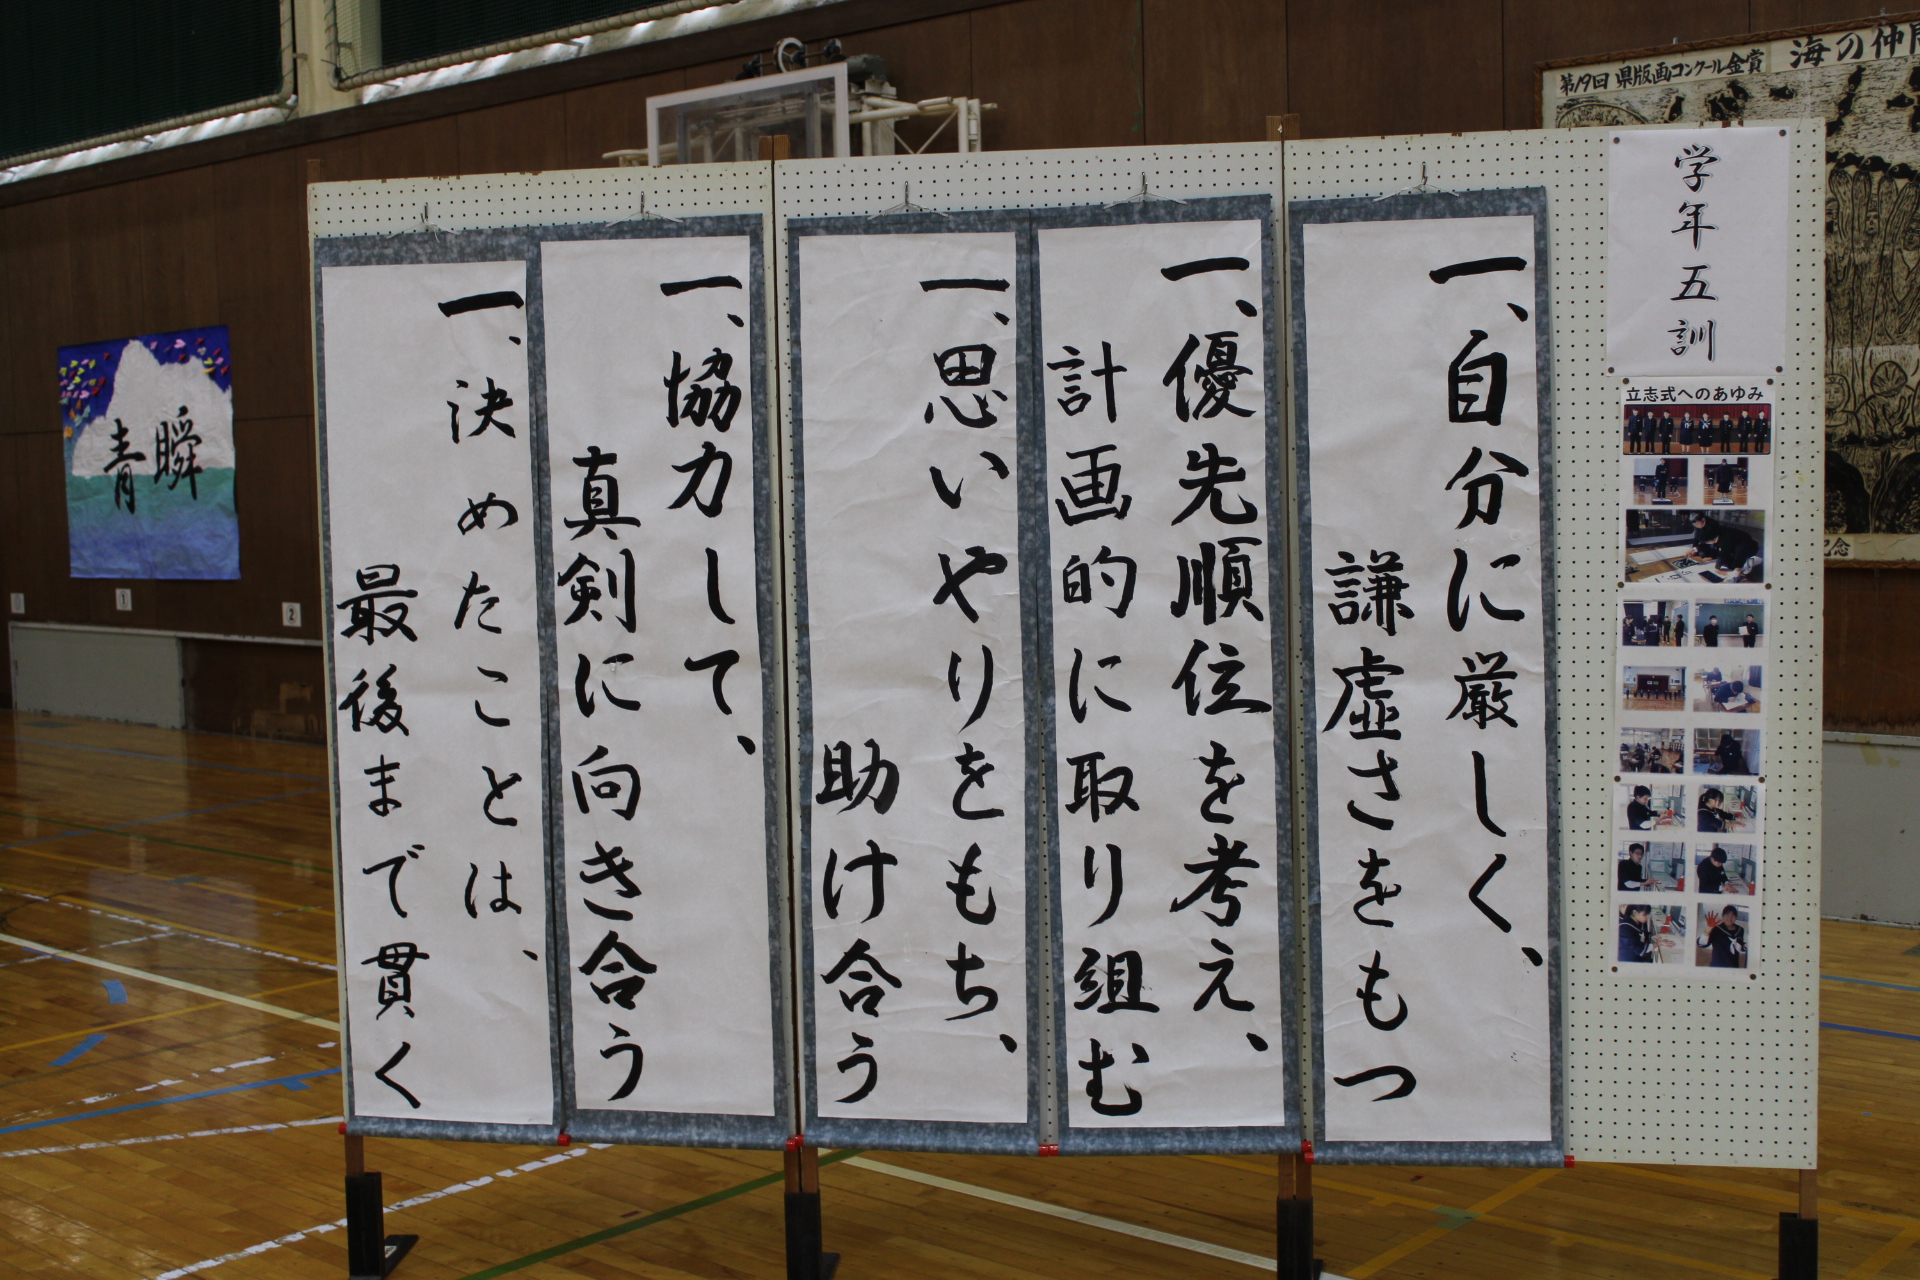 学年五訓
立志式へのあゆみ
一、自分に厳しく、
謙虚さをもつ
一、優先順位を考え、
計画的に取り組む
一、思いやりをもち、
助け合う
一、協力して、
真剣に向き合う
一、決めたことは、
最後まで貫く
第19回 県版画コンクール金賞 海の仲間
記念
瞬
青
1
2